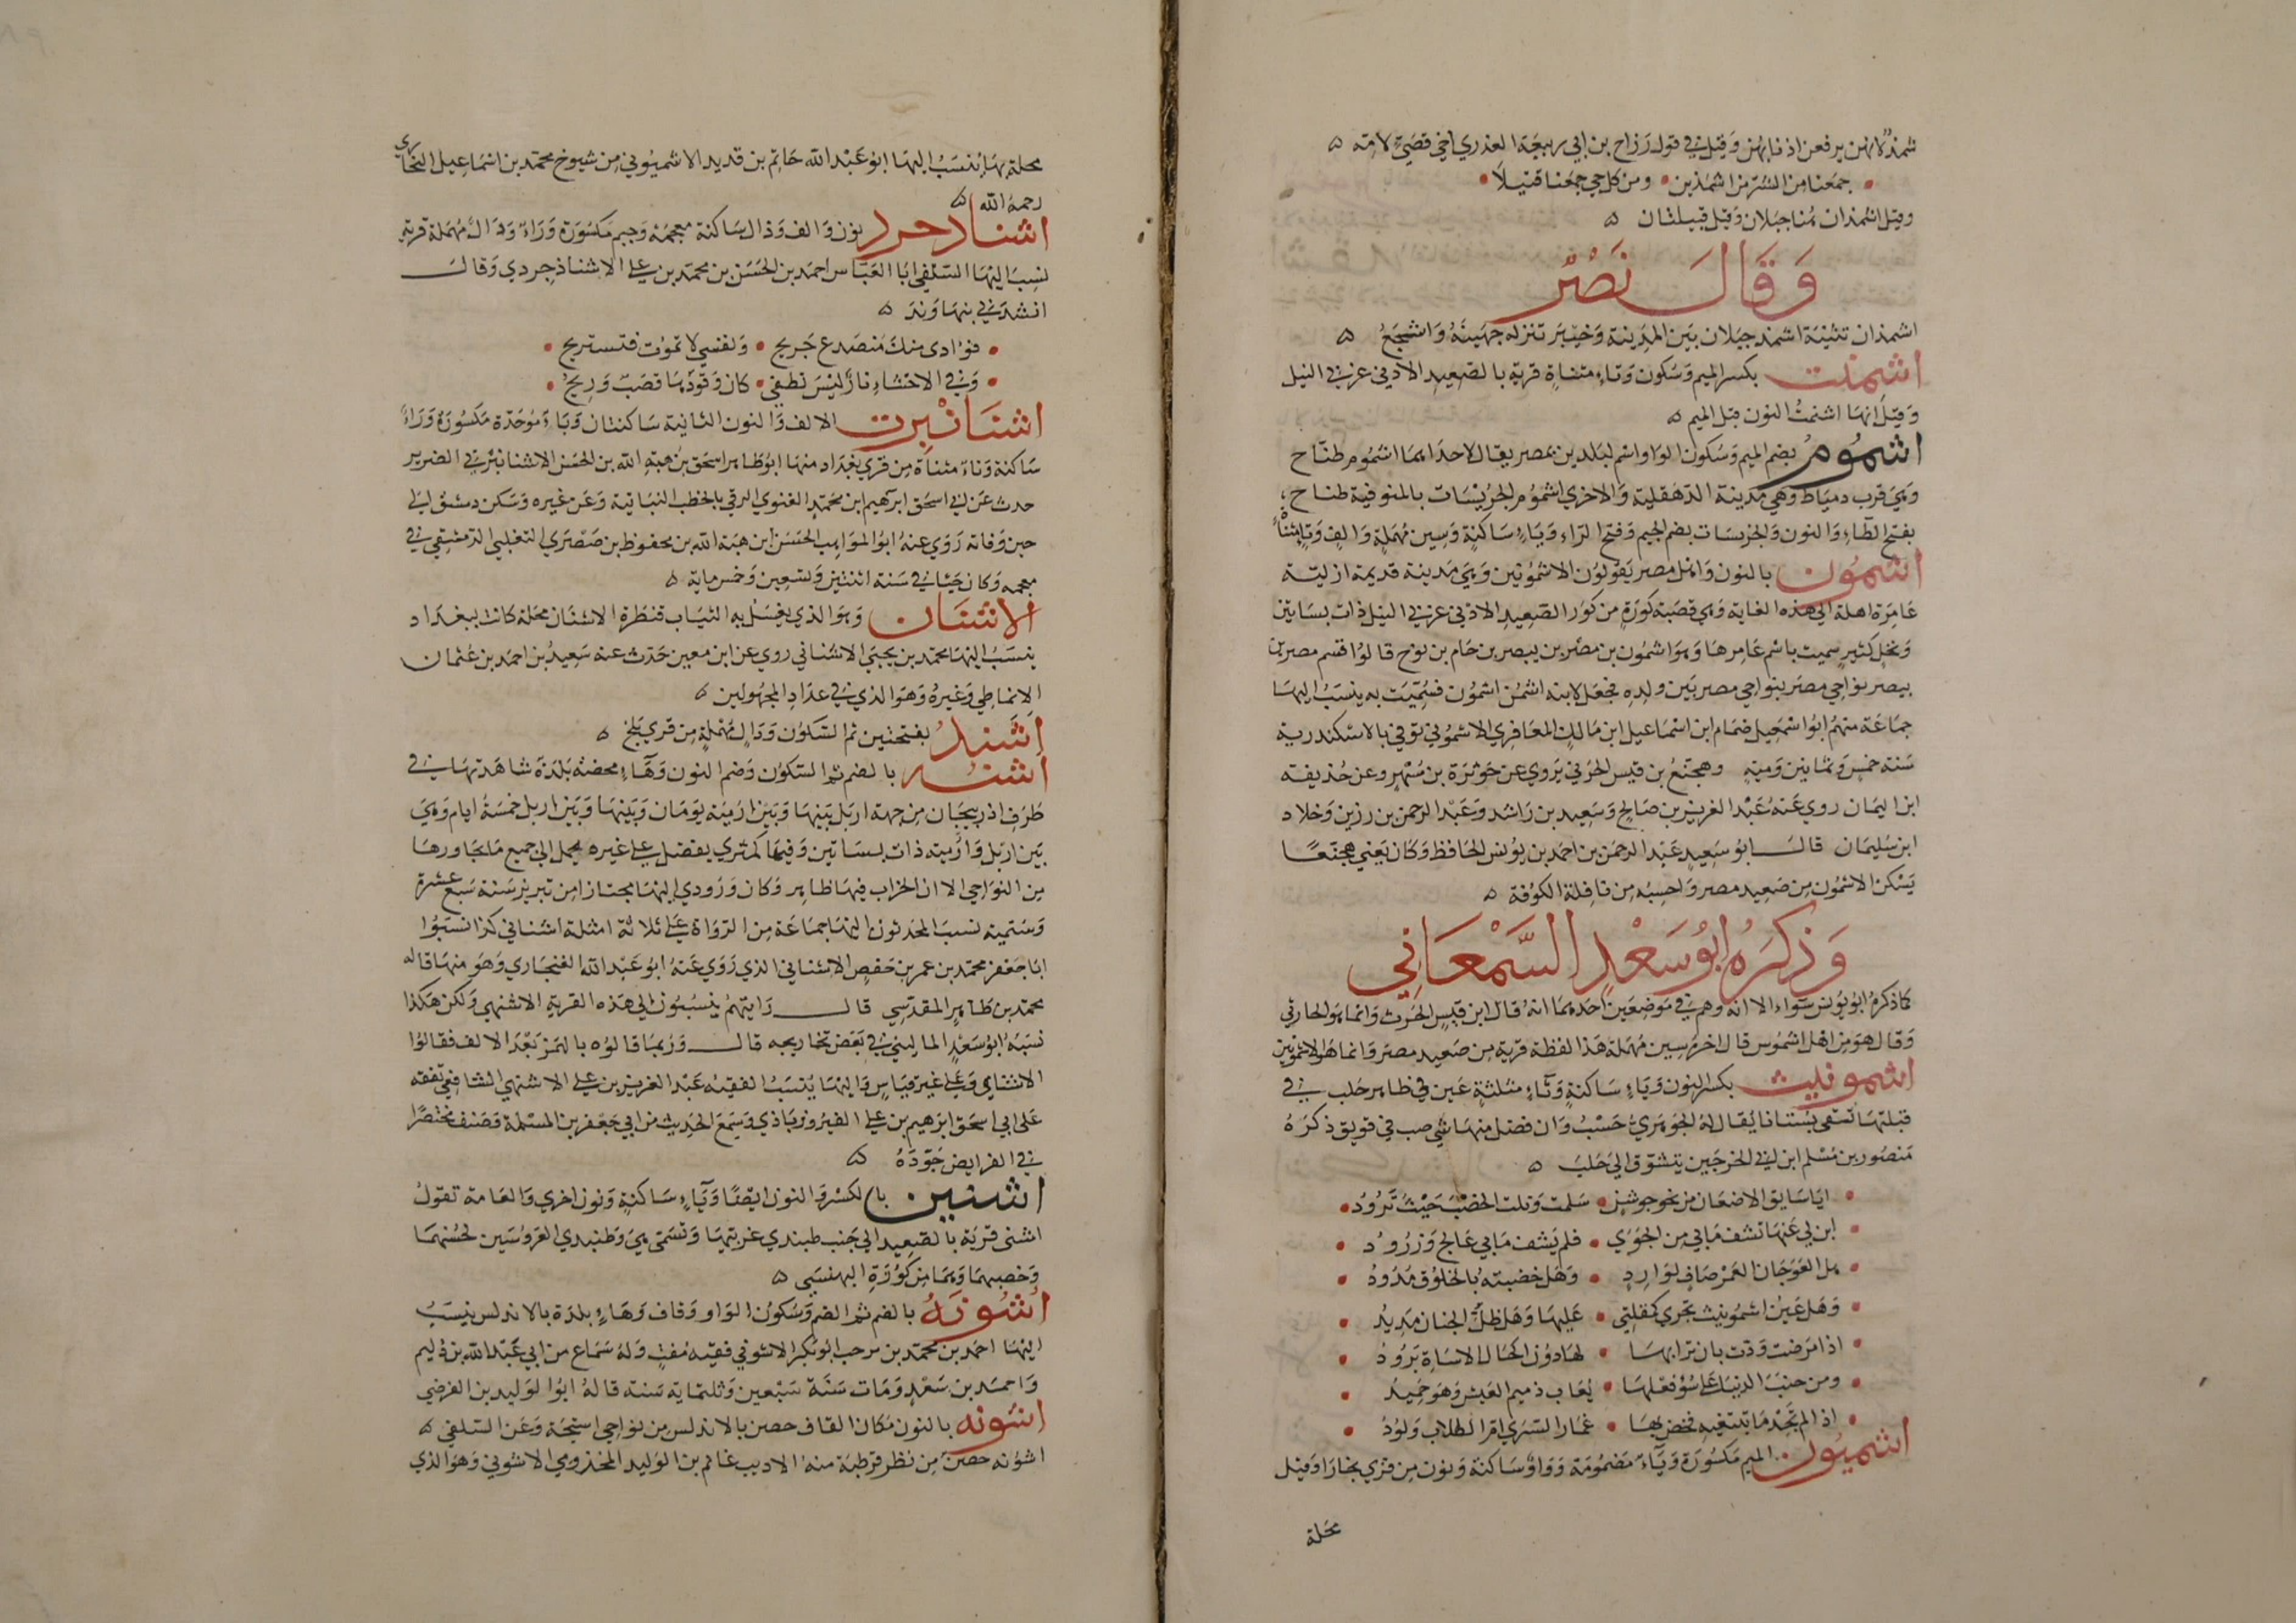 شمذ لانهن يرفعن اذنابهن وقيل في قول رزاح بن ابي ربيعة العذري اخي قصي لامه ه
جمعنا من السر من اشمذين • ومن كل حي جمعنا قبيلا
وقيل اشمذان هنا جبلان وقيل قبيلتان ه
وَقَالَ نَصْر
اشمذان تثنية اشمذ جبلان بين المدينة وخيبر تنزله جهينة واشجع ه
اشمنت بكسر الميم وسكون وتاء مثناة قرية بالصعيد الادنى غربي النيل
وقيل انها اشنمت النون قبل الميم ه
اشموم بضم الميم وسكون الواو اسم لبلدين بمصر يقال لاحداهما اشموم طناح
وهي قرب دمياط وهي مدينة الدهقلية والاخرى اشموم الجريسات بالمنوفية طناح
بفتح الطاء والنون والجريسات بضم الجيم وفتح الراء وياء ساكنة وسين مهملة والف وتا مثناة
اشمون بالنون واهل مصر يقولون الاشمونين وهي مدينة قديمة ازلية
عامرة اهلة الى هذه الغاية وهي قصبة كورة من كور الصعيد الادنى غربي النيل ذات بساتين
ونخل كثير سميت باسم عامرها وهو اشمون بن مصر بن بيصر بن حام بن نوح قالوا قسم مصر بن
بيصر نواحي مصر بنواحي مصر بين ولده فجعل لابنه اشمن اشمون فسميت به ينسب اليها
جماعة منهم ابو اسمعيل ضمام ابن اسماعيل ابن مالك المعافري الاشموني توفي بالاسكندرية
سنة خمس وثمانين ومية وهجنع بن قيس الحرثي يروي عن حوثرة بن مسهر وعن حذيفة
ابن اليمان روى عنه عبد العزيز بن صالح وسعيد بن راشد وعبد الرحمن بن رزين وخلاد
ابن سليمان قال ابو سعيد عبد الرحمن بن احمد بن يونس الحافظ وكان يعني هجنعا
يسكن الاشمون من صعيد مصر واحسبه من ناقلة الكوفة ه
وَذكَرَهُ ابُو سَعْدٍ السَّمْعَانِي
كما ذكره ابو يونس سواء الا انه وهم في موضعين احدهما انه قال ابن قيس الحرث وانما هو الحارثي
وقال هو من اهل اشموس قال اخره سين مهملة هذا لفظة قرية من صعيد مصر وانما هو الاشمونين
اشمونيث بكسر النون وياء ساكنة وثاء مثلثة عين في ظاهر حلب في
قبلتها تسقى بستانا يقال له الجوهري حسب وان فضل منها شي صب في قويق ذكره
منصور بن مسلم ابن ابي الخرجين يتشوق الى حلب ه
ايا سايق الاضعان من نحو جوشن • سلمت ونلت الخصب حيث ترود
ابن لي عنها تشف ما بي من الجوى • فلم يشف ما بي عالج وزرود
هل العوجان الغمر صاف لوارد • وهل خضبته بالخلوق مدود
وهل عين اشمونيث تجري كمقلتي • عليها وهل ظل الجنان مديد
اذا مرضت ودت بان ترابها • لها دون الحال الاساة برود
ومن حبب الدنيا على سوء فعلها • يعاب ذميم العيش وهو حميد
اذا لم تجد ما تبتغيه فخض بها • غمار السرى ام الطلاب ولود
اشميون الميم مكسورة وياء مضمومة وواو ساكنة ونون من قرى بخارا وقيل
محلة
محلة بها ينسب اليها ابو عبد الله حاتم بن قديد الاشميوني من شيوخ محمد بن اسماعيل البخاري
رحمه الله ه
اشناذجرد نون والف وذال ساكنة معجمة وجيم مكسورة وراء ودال مهملة قرية
نسب اليها السلفي ابا العباس احمد بن الحسن بن محمد بن علي الاشناذجردي وقال
انشدني بنهاوند ه
فؤادي منك منصدع جريح • ونفسي لا تموت فتستريح
وفي الاحشاء نار ليس تطفى • كان وقودها قصب وريح
اشنانبرت الالف والنون الثانية ساكنتان وباء موحدة مكسورة وراء
ساكنة وتاء مثناة من قرى بغداد منها ابو طاهر اسحق بن هبة الله بن الحسن الاشنانبرتي الضرير
حدث عن ابي اسحق ابرهيم ابن محمد الغنوي الرقي بالخطب النباتية وعن غيره وسكن دمشق الى
حين وفاته روى عنه ابو المواهب الحسن ابن هبة الله بن محفوظ بن صصرى التغلبي الدمشقي في
معجمه وكان حيا في سنة اثنتين وتسعين وخمسماية ه
الاشنان وهو الذي يغسل به الثياب قنطرة الاشنان محلة كانت ببغداد
ينسب اليها محمد بن يحيى الاشناني روى عن ابن معين حدث عنه سعيد بن احمد بن عثمان
الانماطي وغيره وهو الذي في عداد المجهولين ه
اشند بفتحتين ثم السكون ودال مهملة من قرى بلخ ه
اشنه بالضم ثم السكون وضم النون وهاء محضة بلدة شاهدتها في
طرف اذربيجان من جهة اربل بينها وبين ارمية يومان وبينها وبين اربل خمسة ايام وهي
بين اربل وارمية ذات بساتين وفيها كمثرى يفضل على غيره يحمل الى جميع ما يجاورها
من النواحي الا ان الخراب فيها ظاهر وكان ورودي اليها مجتازا من تبريز سنة سبع عشرة
وستمية نسب المحدثون اليها جماعة من الرواة على ثلاثة امثلة اشناني كذا نسبوا
ابا جعفر محمد بن عمر بن حفص الاشناني الذي روى عنه ابو عبد الله الغنجاري وهو منها قاله
محمد بن طاهر المقدسي قال رايتهم ينسبون الى هذه القرية الاشنهي ولكن هكذا
نسبه ابو سعد الماليني في بعض تخاريجه قال وربما قالوه بالهمز بعد الالف فقالوا
الاشنايي وعلى غير قياس واليها ينسب الفقيه عبد العزيز بن علي الاشنهي الشافعي تفقه
على ابي اسحق ابرهيم بن علي الفيروزباذي وسمع الحديث من ابي جعفر بن المسلمة وصنف مختصرا
في الفرايض جوده ه
اشنين بالكسر والنون ايضا وياء ساكنة ونون اخرى والعامة تقول
اشنى قرية بالصعيد الى جنب طنبدى غربيها وتسمى هي وطنبدى العروسين لحسنهما
وخصبهما وهما من كورة البهنسى ه
اشوقة بالضم ثم الضم وسكون الواو وقاف وهاء بلدة بالاندلس ينسب
اليها احمد بن محمد بن مرحب ابو بكر الاشوقي فقيه مفت وله سماع من ابي عبد الله بن دليم
واحمد بن سعد ومات سنة سبعين وثلثماية سنة قاله ابو الوليد بن الفرضي
اشونه بالنون مكان القاف حصن بالاندلس من نواحي استجة وعن السلفي ه
اشونه حصن من نظر قرطبة منه الاديب غانم بن الوليد المخزومي الاشوني وهو الذي